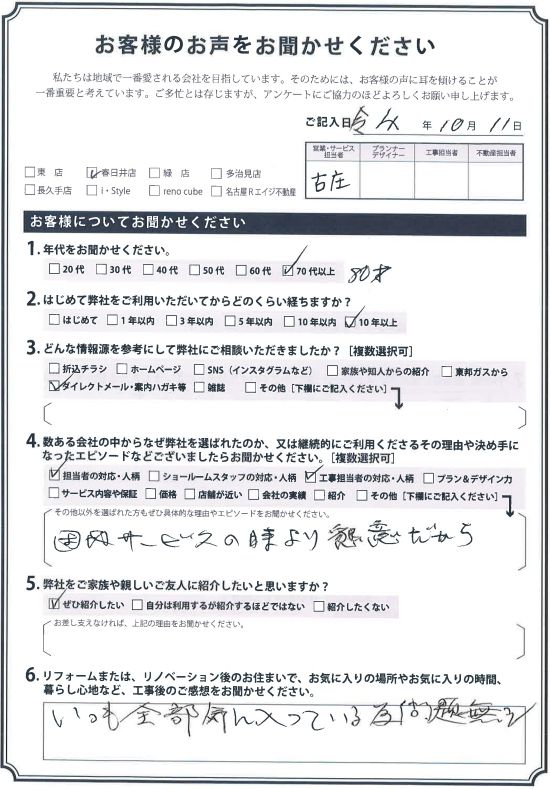 お客様のお声をお聞かせください
私たちは地域で一番愛される会社を目指しています。そのためには、お客様の声に耳を傾けることが
一番重要と考えています。ご多忙とは存じますが、アンケートにご協力のほどよろしくお願い申し上げます。
ご記入日 令 年 10 月 11 日
営業・サービス担当者 プランナーデザイナー 工事担当者 不動産担当者
古庄
東 店 春日井店 緑 店 多治見店
長久手店 i・Style reno cube 名古屋Rエイジ不動産
お客様についてお聞かせください
1. 年代をお聞かせください。
20代 30代 40代 50代 60代 70代以上 80才
2. はじめて弊社をご利用いただいてからどのくらい経ちますか？
はじめて 1年以内 3年以内 5年以内 10年以内 10年以上
3. どんな情報源を参考にして弊社にご相談いただきましたか？［複数選択可］
折込チラシ ホームページ SNS（インスタグラムなど） 家族や知人からの紹介 東邦ガスから
ダイレクトメール・案内ハガキ等 雑誌 その他［下欄にご記入ください］
4. 数ある会社の中からなぜ弊社を選ばれたのか、又は継続的にご利用くださるその理由や決め手に
なったエピソードなどございましたらお聞かせください。［複数選択可］
担当者の対応・人柄 ショールームスタッフの対応・人柄 工事担当者の対応・人柄 プラン＆デザイン力
サービス内容や保証 価格 店舗が近い 会社の実績 紹介 その他［下欄にご記入ください］
その他以外を選ばれた方もぜひ具体的な理由やエピソードをお聞かせください。
サービスの時より懇意だから
5. 弊社をご家族や親しいご友人に紹介したいと思いますか？
ぜひ紹介したい 自分は利用するが紹介するほどではない 紹介したくない
お差し支えなければ、上記の理由をお聞かせください。
6. リフォームまたは、リノベーション後のお住まいで、お気に入りの場所やお気に入りの時間、
暮らし心地など、工事後のご感想をお聞かせください。
いつも全部気に入っている為問題無し